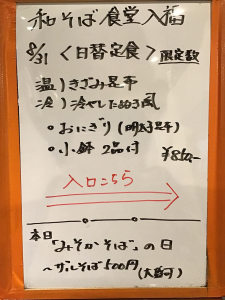 和そば食堂入福
8/31 〈日替定食〉 限定数
温)きざみ昆布
冷)冷やしたぬき風
○おにぎり(明太昆布)
○小鉢 2品付 ¥850-
入口こちら
本日
"みそかそば"の日
〜ザルそば500円(大葱可)